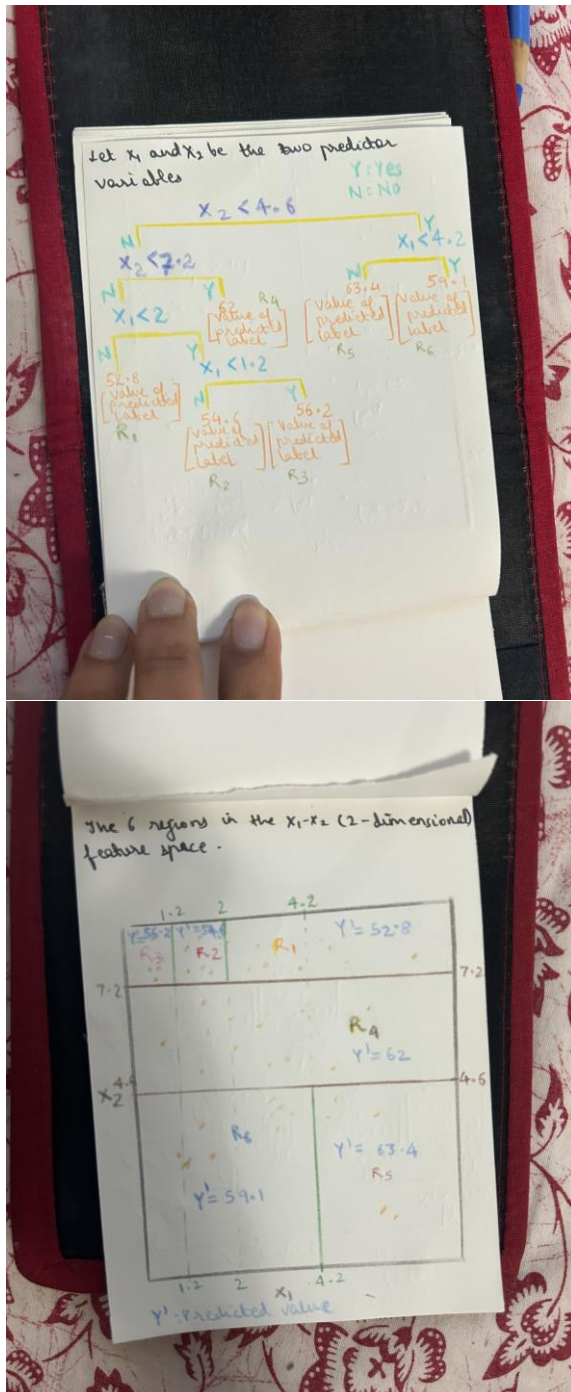 Let x1 and x2 be the two predictor
variables
Y: Yes
N: No
X2 < 4.6
N
Y
X2 < 7.2
X1 < 4.2
N
Y
N
Y
X1 < 2
62
[value of
predicted
label]
R4
63.4
[value of
predicted
label]
R5
59.1
[value of
predicted
label]
R6
N
Y
52.8
[value of
predicted
label]
R1
X1 < 1.2
N
Y
54.6
[value of
predicted
label]
R2
56.2
[value of
predicted
label]
R3
The 6 regions in the X1-X2 (2-dimensional)
feature space.
1.2 2 4.2
Y'=56.2 Y'=54.6 Y'= 52.8
R3 R2 R1
7.2 7.2
R4
Y'= 62
4.6 4.6
X2
R6 Y'= 63.4
R5
Y'= 59.1
1.2 2 4.2
X1
Y': Predicted value